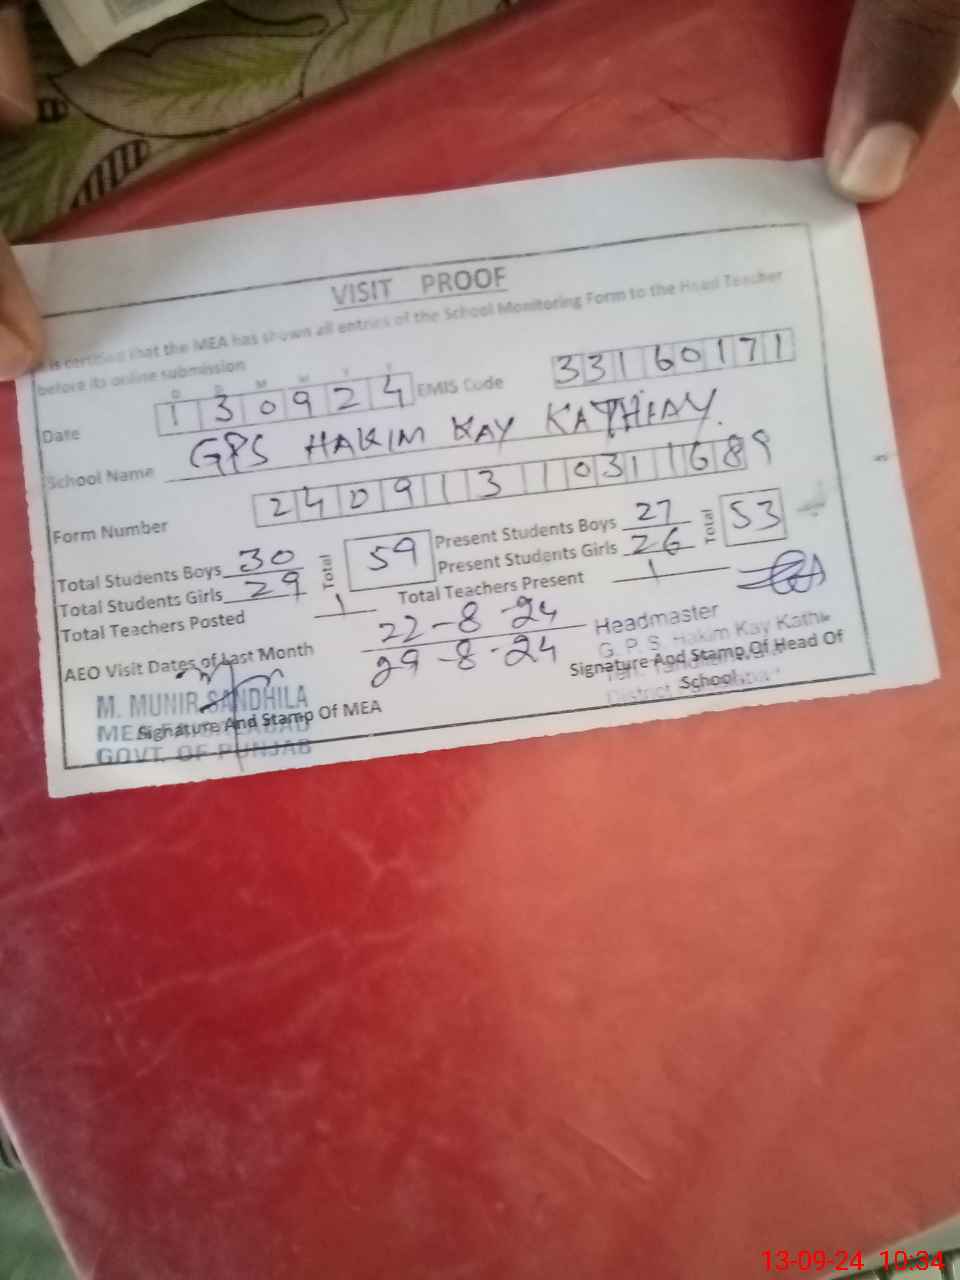 VISIT PROOF
is certified that the MEA has shown all entries of the School Monitoring Form to the Head Teacher
before its online submission
D D M M Y Y
Date 130924 EMIS Code 33160171
School Name GPS HAKIM KAY KATHIAY.
Form Number 240913103111689
Total Students Boys 30 Total 59 Present Students Boys 27 Total 53
Total Students Girls 29 Present Students Girls 26
Total Teachers Posted 1 Total Teachers Present 1
AEO Visit Dates of Last Month 22-8-24
29-8-24
Headmaster
G.P.S. Hakim Kay Kathi
Signature And Stamp Of Head Of
School
District
M. MUNIR SANDHILA
MEA
Signature And Stamp Of MEA
GOVT. OF PUNJAB
13-09-24 10:34